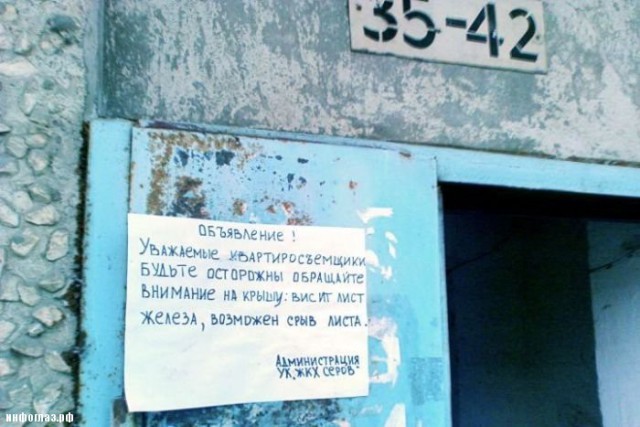 35-42
ОБЪЯВЛЕНИЕ!
УВАЖАЕМЫЕ КВАРТИРОСЪЕМЩИКИ
БУДЬТЕ ОСТОРОЖНЫ ОБРАЩАЙТЕ
ВНИМАНИЕ НА КРЫШУ: ВИСИТ ЛИСТ
ЖЕЛЕЗА, ВОЗМОЖЕН СРЫВ ЛИСТА.
АДМИНИСТРАЦИЯ
УК„ЖКХ СЕРОВ"
инфоглаз.рф